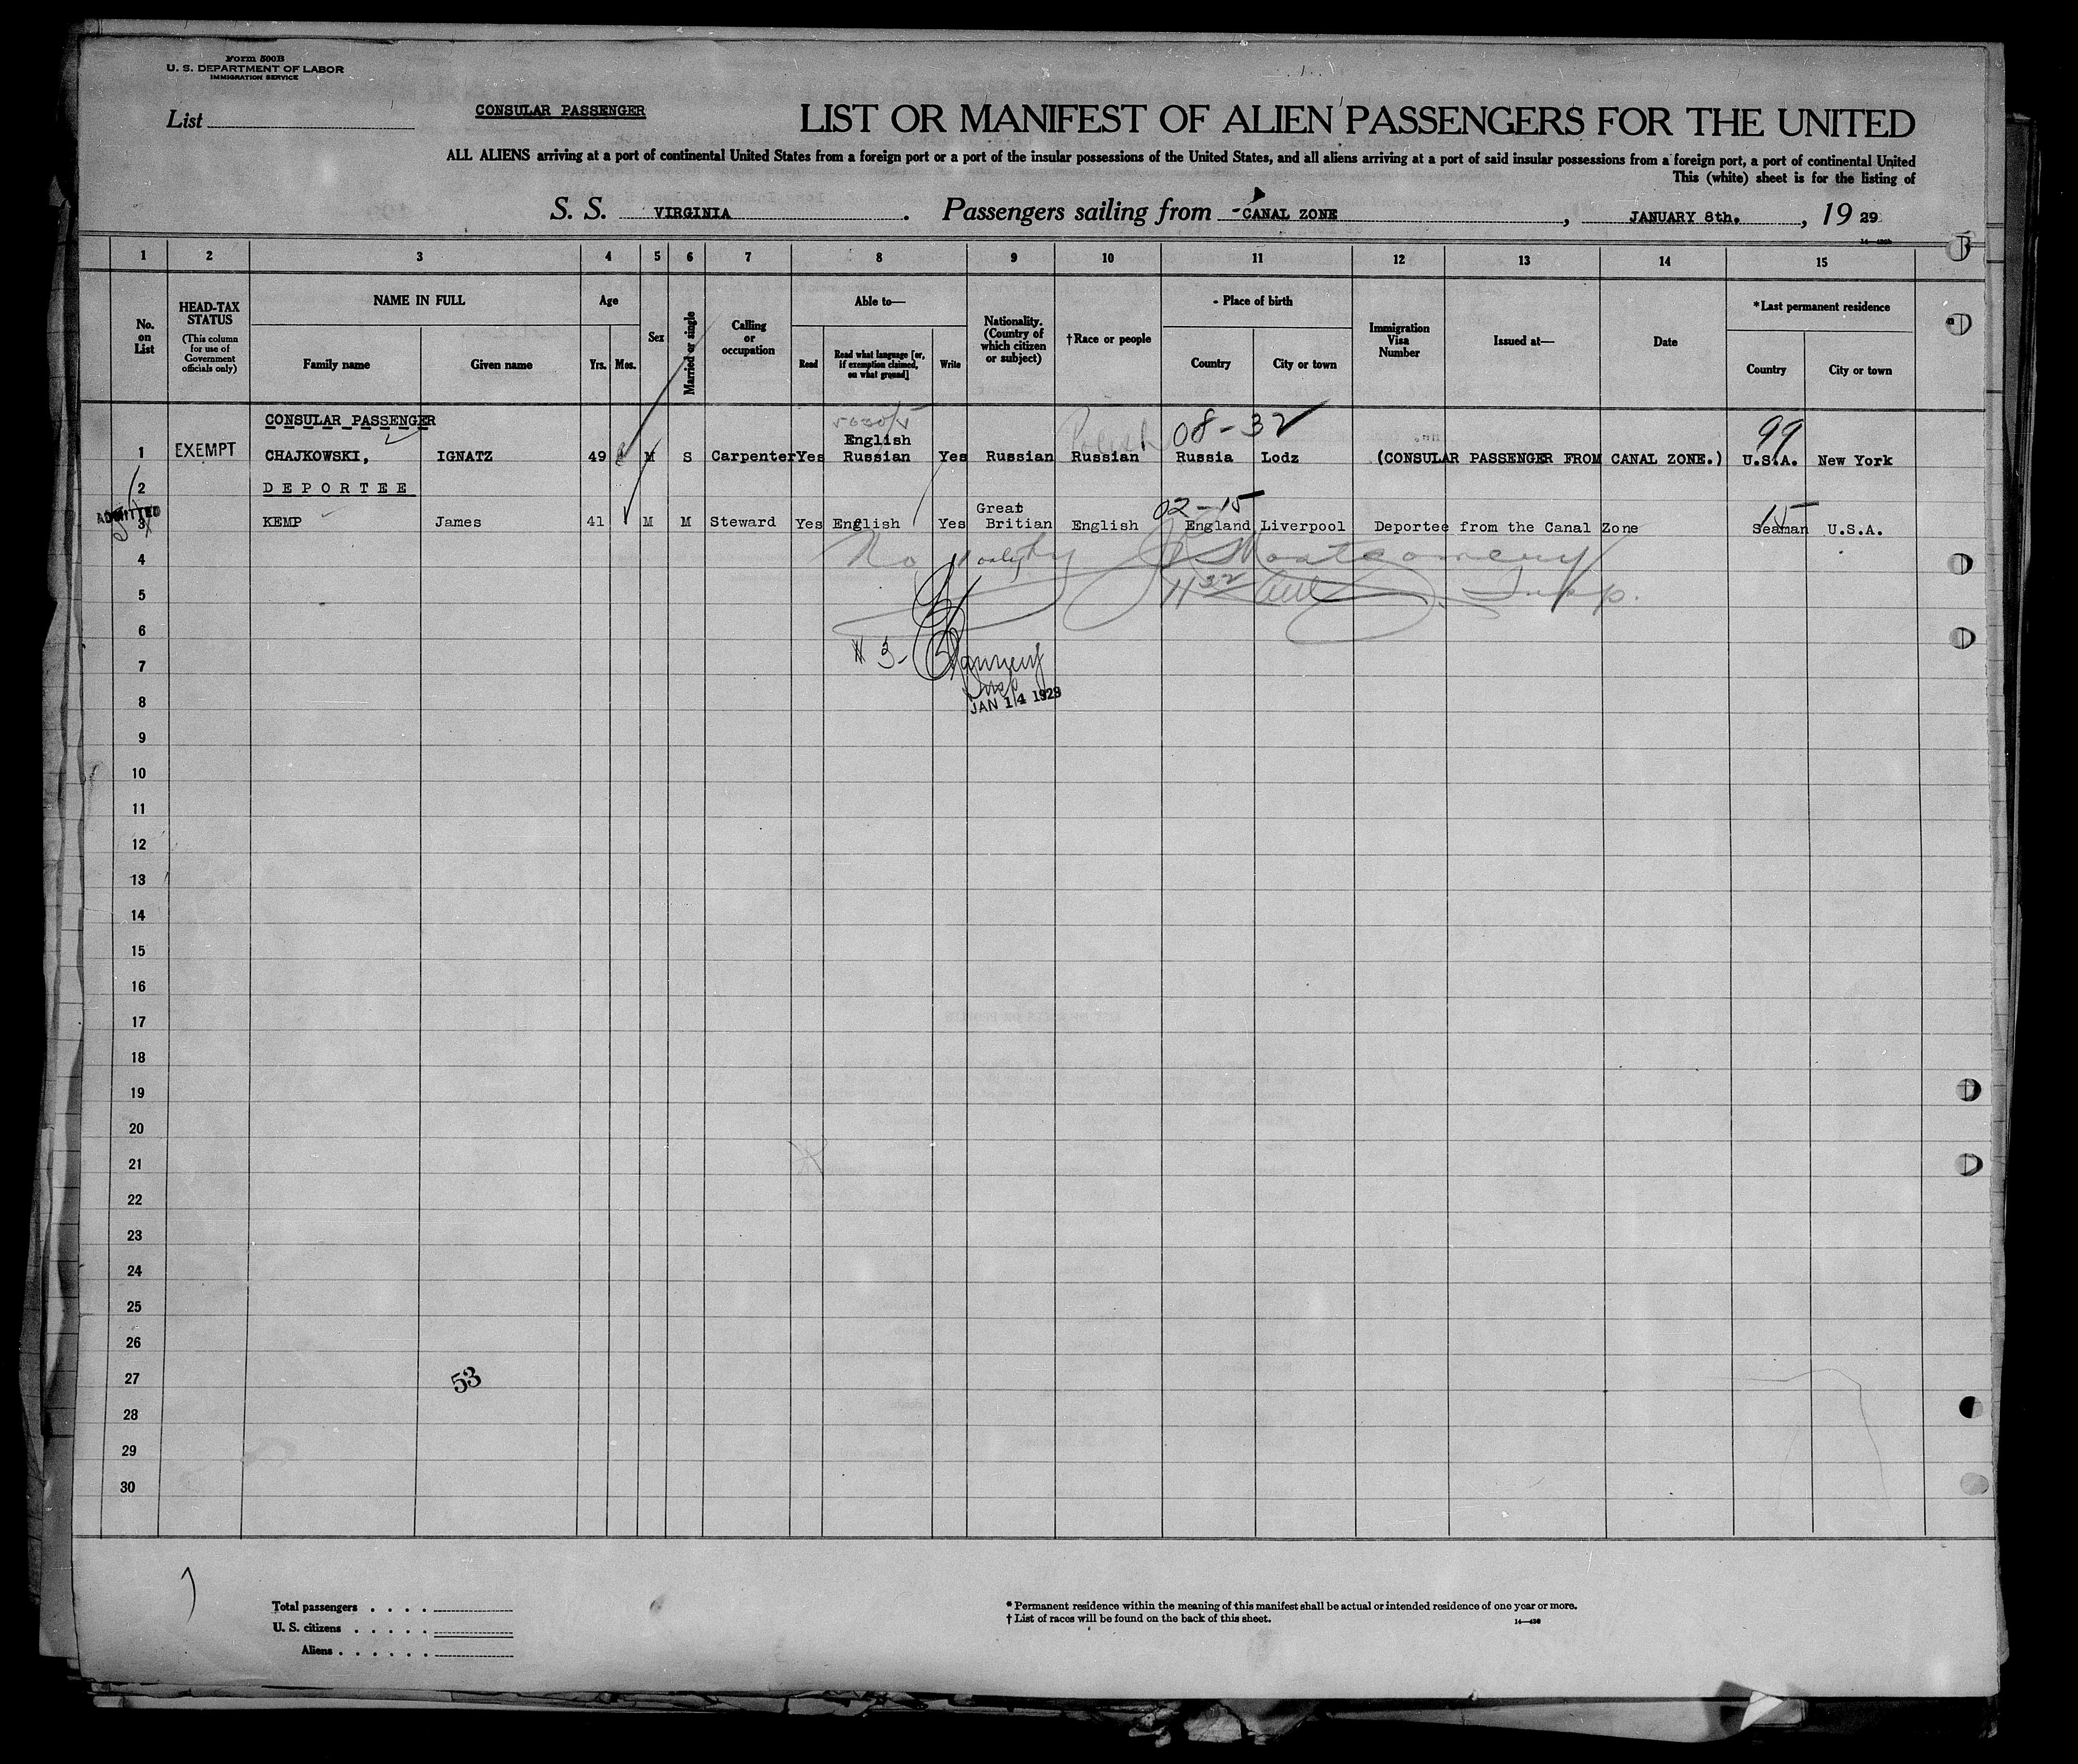 Form 500B
U. S. DEPARTMENT OF LABOR
IMMIGRATION SERVICE
List
CONSULAR PASSENGER
LIST OR MANIFEST OF ALIEN PASSENGERS FOR THE UNITED
ALL ALIENS arriving at a port of continental United States from a foreign port or a port of the insular possessions of the United States, and all aliens arriving at a port of said insular possessions from a foreign port, a port of continental United
This (white) sheet is for the listing of
S. S. VIRGINIA . Passengers sailing from CANAL ZONE , JANUARY 8th. , 19 29
1 2 3 4 5 6 7 8 9 10 11 12 13 14 15
No. on List
HEAD-TAX STATUS
(This column for use of Government officials only)
NAME IN FULL
Family name Given name
Age
Yrs. Mos.
Sex
Married or single
Calling or occupation
Able to—
Read Read what language [or, if exemption claimed, on what ground] Write
Nationality. (Country of which citizen or subject)
†Race or people
Place of birth
Country City or town
Immigration Visa Number
Issued at—
Date
*Last permanent residence
Country City or town
CONSULAR PASSENGER
08-32
99
Polish
English
1 EXEMPT CHAJKOWSKI, IGNATZ 49 M S Carpenter Yes Russian Yes Russian Russian Russia Lodz (CONSULAR PASSENGER FROM CANAL ZONE.) U.S.A. New York
2 DEPORTEE
02-15
15
Great
ADMITTED 3 KEMP James 41 M M Steward Yes English Yes Britian English England Liverpool Deportee from the Canal Zone Seaman U.S.A.
4 No 1 only by Montgomery
5 Insp.
6
# 3-
7
Insp
8 JAN 14 1929
9
10
11
12
13
14
15
16
17
18
19
20
21
22
23
24
25
26
27 53
28
29
30
Total passengers
U. S. citizens
Aliens
* Permanent residence within the meaning of this manifest shall be actual or intended residence of one year or more.
† List of races will be found on the back of this sheet.